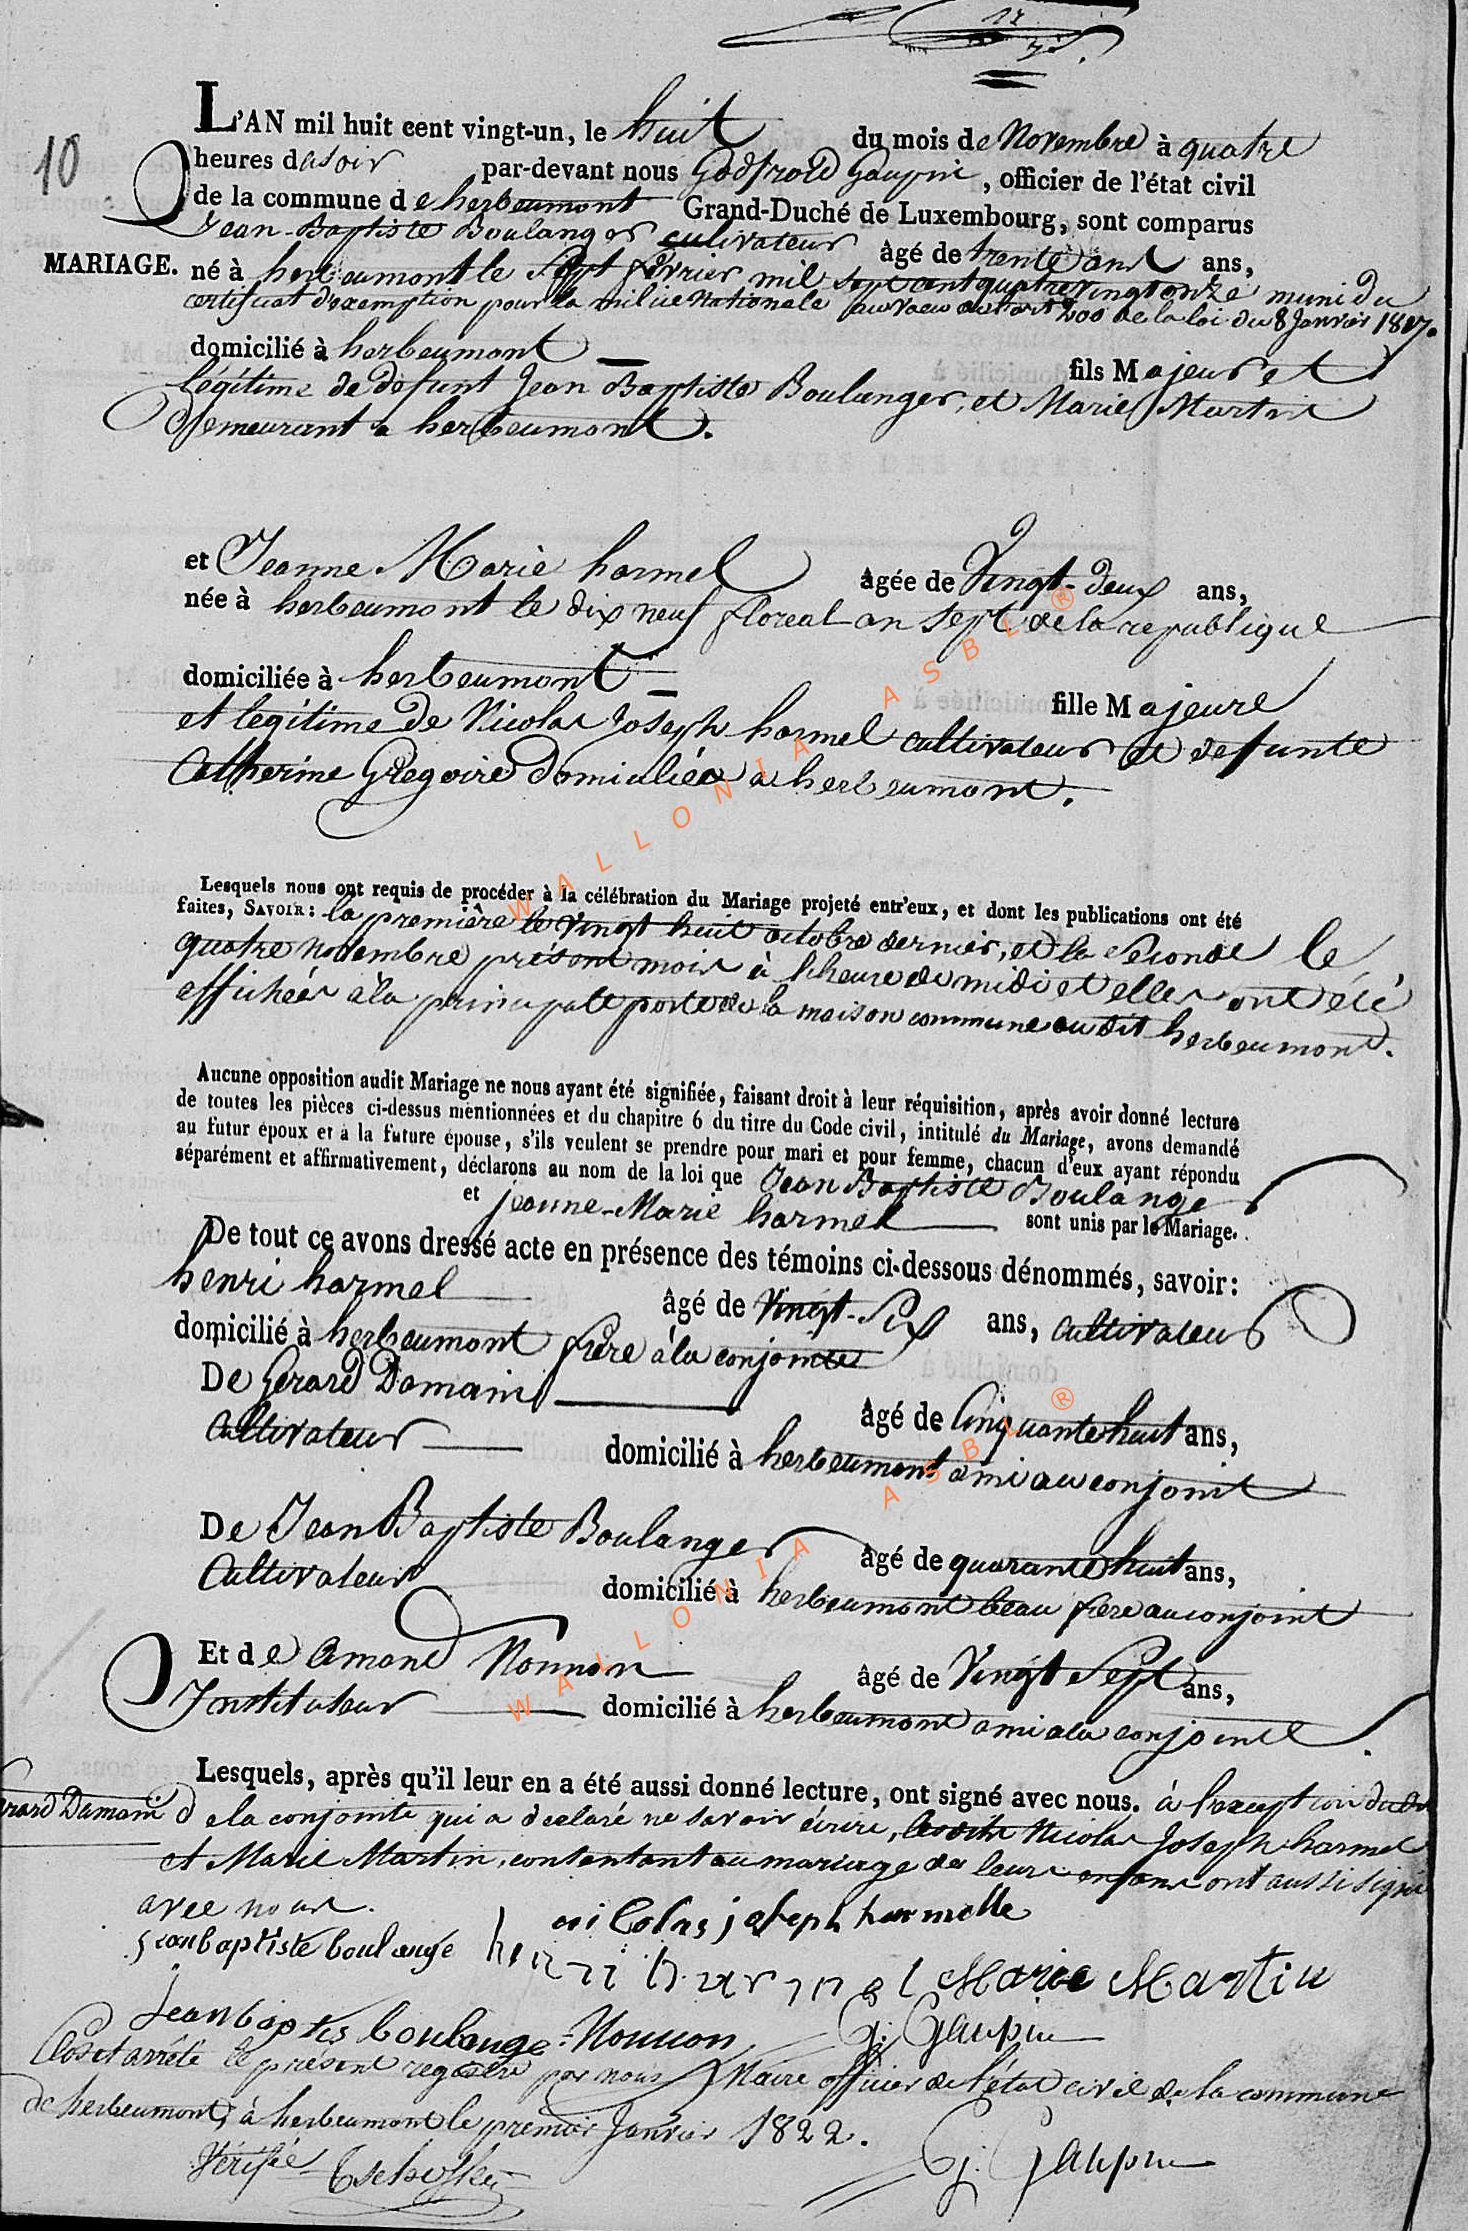 10
L'AN mil huit cent vingt-un, le huit du mois de Novembre à quatre
heures dasoir par-devant nous Godfroid Gaupin, officier de l'état civil
de la commune de herbeumont Grand-Duché de Luxembourg, sont comparus
Jean-Baptiste Boulanger cultivateur âgé de trente ans ans,
MARIAGE. né à herbeumont le Sept fevrier mil sept cent quatrevingtonze muni du
certificat d'exemption pour la milice Nationale au voeu de l'art 200 de la loi du 8 Janvier 1817.
domicilié à herbeumont fils Majeur et
légitime de défunt Jean Baptiste Boulanger, et Marie Martin
Demeurant a herbeumont.
et Jeanne Marie harmel âgée de Vingt-deux ans,
née à herbeumont le dix neuf floreal an sept de la republique
domiciliée à herbeumont fille Majeure
et legitime de Nicolas Joseph harmel cultivateur et defunte
Catherine Gregoire Domiciliée a herbeumont.
Lesquels nous ont requis de procéder à la célébration du Mariage projeté entr'eux, et dont les publications ont été
faites, SAVOIR: la première le vingt huit octobre dernier, et la seconde le
quatre novembre présent mois à l'heure de midi et elles ont été
affichées à la principale porte de la maison commune audit herbeumont.
Aucune opposition audit Mariage ne nous ayant été signifiée, faisant droit à leur réquisition, après avoir donné lecture
de toutes les pièces ci-dessus mentionnées et du chapitre 6 du titre du Code civil, intitulé du Mariage, avons demandé
au futur époux et à la future épouse, s'ils veulent se prendre pour mari et pour femme, chacun d'eux ayant répondu
séparément et affirmativement, déclarons au nom de la loi que Jean Baptiste Boulanger
et jeanne-Marie harmel sont unis par le Mariage.
De tout ce avons dressé acte en présence des témoins ci-dessous dénommés, savoir:
henri harmel âgé de Vingt-Six ans, cultivateur
domicilié à herbeumont frère à la conjointe
De Gerard Damain âgé de Cinquante huit ans,
Cultivateur domicilié à herbeumont ami au conjoint
De Jean Baptiste Boulanger âgé de quarante huit ans,
Cultivateur domicilié à herbeumont beau frere au conjoint
Et de Amand Nonnon âgé de Vingt Sept ans,
Instituteur domicilié à herbeumont ami ala conjointe
Lesquels, après qu'il leur en a été aussi donné lecture, ont signé avec nous. à l'exception dudit
Gerard Damain de la conjointe qui a declaré ne savoir écrire, Nicolas Joseph harmel
et Marie Martin, contentant au mariage de leurs enfans ont aussi signé
avec nous.
nicolas joseph harmelle
jeanbaptiste boulange henri harmel Marie Martin
Jeanbaptis boulange Nonnon G: Gaupin
Clos et arrêté le présent registre par nous Maire officier de l'état civil de la commune
de herbeumont, à herbeumont le premier Janvier 1822.
Vérifié G. Gaupin
WALLONIA ASBL ®
WALLONIA ASBL ®